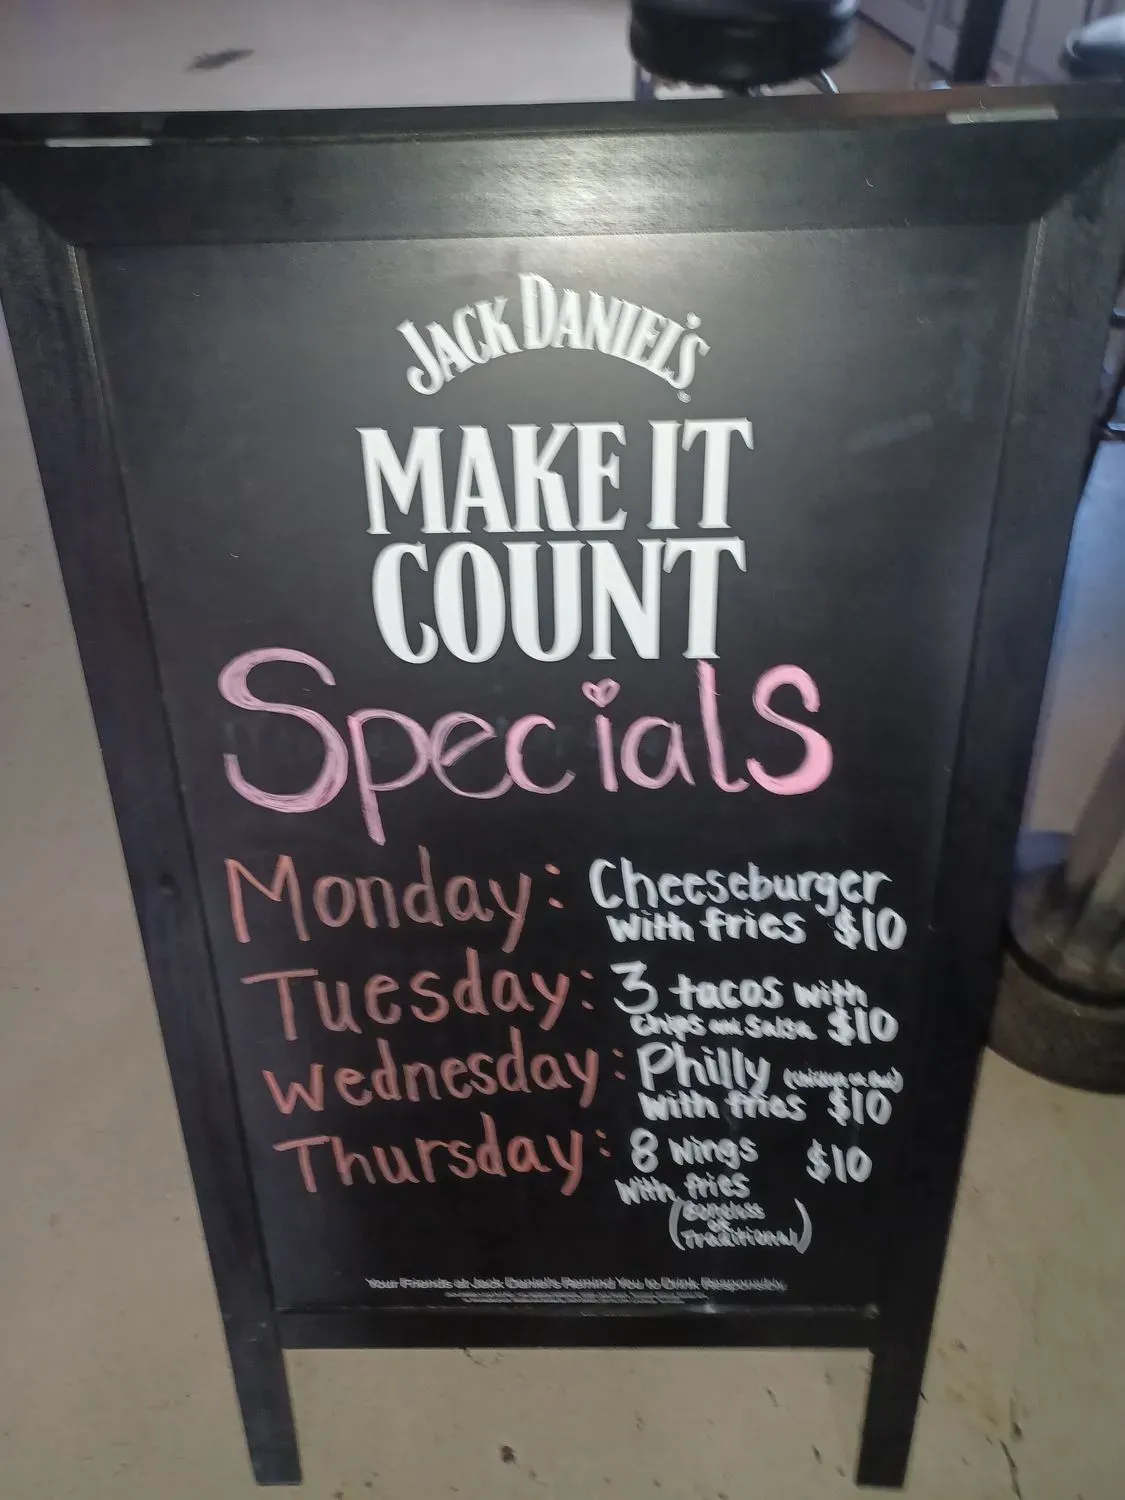 JACK DANIEL'S
MAKE IT
COUNT
Specials
Monday: Cheeseburger
with fries $10
Tuesday: 3 tacos with
chips and Salsa $10
Wednesday: Philly
with fries $10
Thursday: 8 Wings $10
with fries
(Boneless
or
Traditional)
Your Friends at Jack Daniel's Remind You to Drink Responsibly.